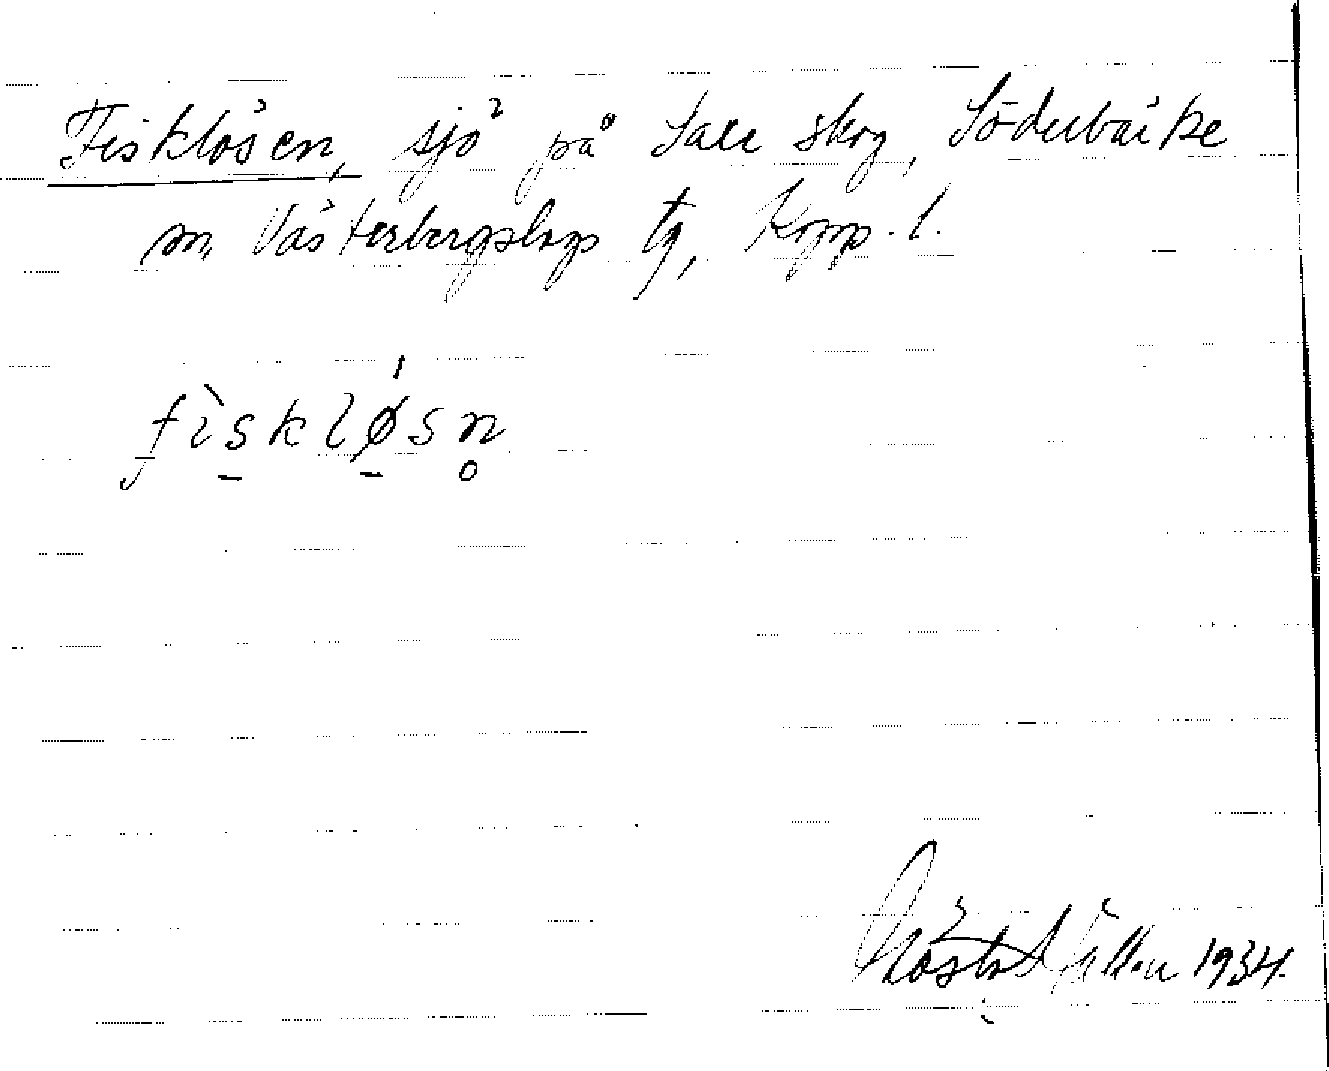 Fisklösen, sjö på skog, Söderbärke
sn, Västerbergslags tg, Kopp. l.
fìsklǿsn̥
Gösta 1934.